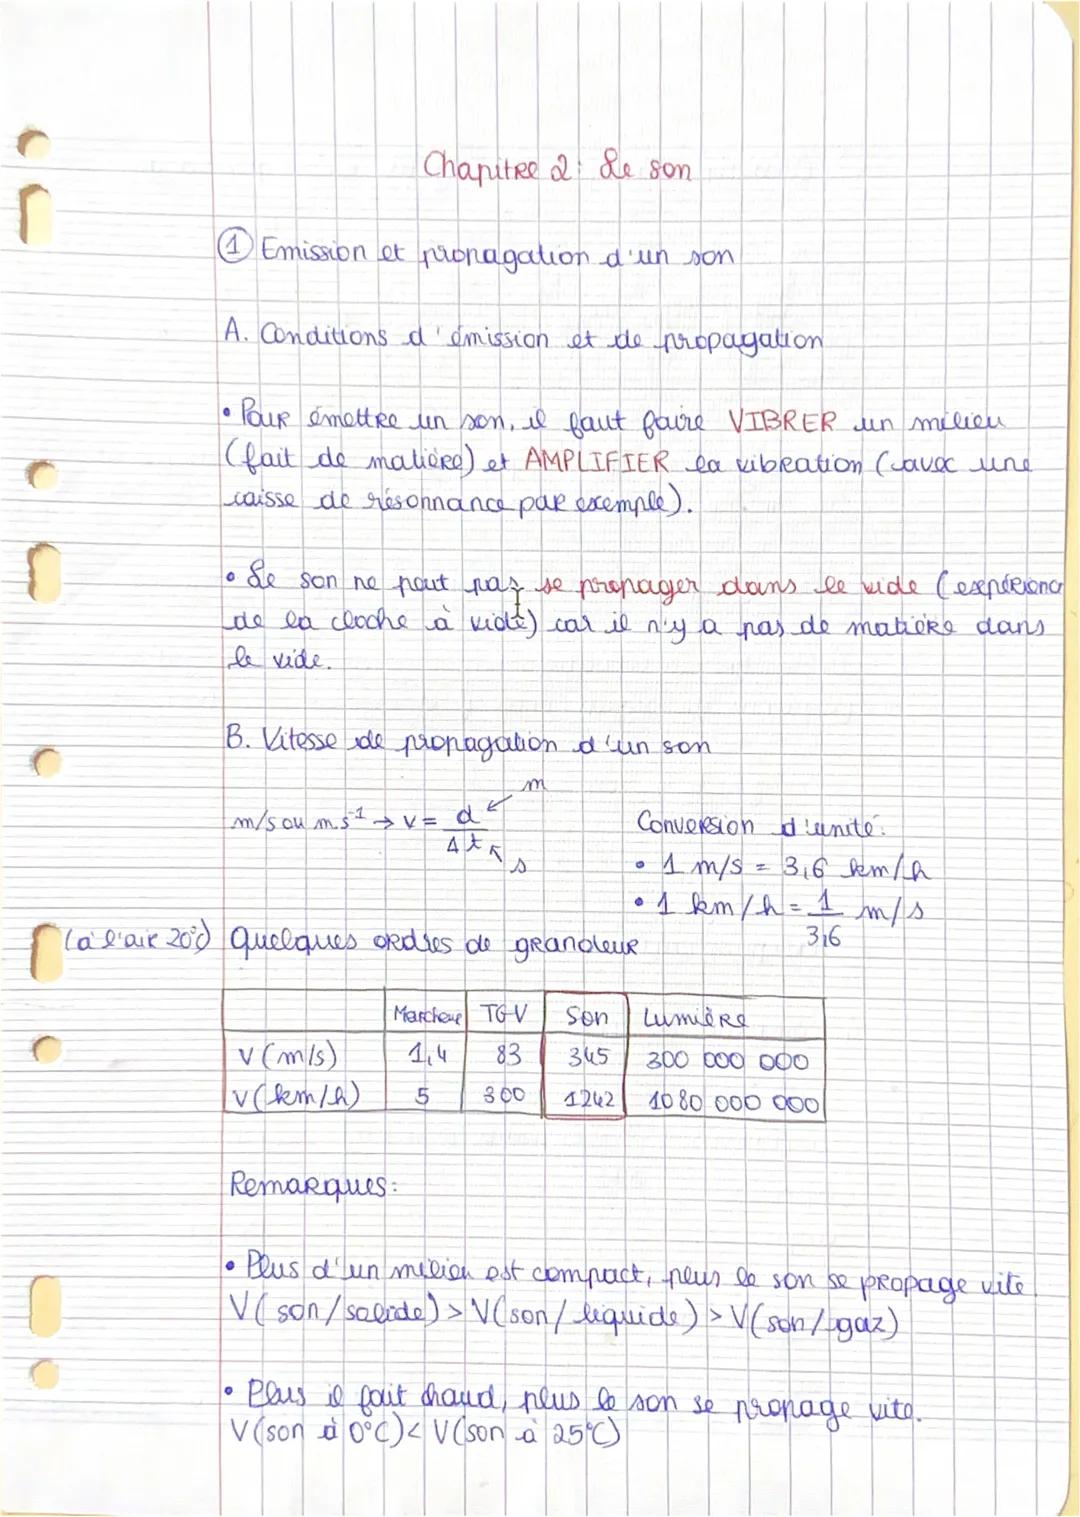 Chapitre 2: Le son
① Emission et propagation d'un son
A. Conditions d'émission et de propagation
• Pour émettre un son, il faut faire VIBRER un milieu
(fait de matière) et AMPLIFIER la vibration (avec une
caisse de résonnance par exemple).
• Le son ne peut pas se propager dans le vide (expérience
de la cloche à vide) car il n'y a pas de matière dans
le vide.
B. Vitesse de propagation d'un son
m
m/s ou m.s⁻¹ → v = d
Δt
s
Conversion d'unité:
• 1 m/s = 3,6 km/h
• 1 km/h = 1 m/s
3,6
(à l'air 20°C) Quelques ordres de grandeur
Marcheur TGV Son Lumière
V (m/s) 1,4 83 345 300 000 000
V (km/h) 5 300 1242 1080 000 000
Remarques:
• Plus d'un milieu est compact, plus le son se propage vite.
V(son/solide) > V(son/liquide) > V(son/gaz)
• Plus il fait chaud, plus le son se propage vite.
V(son à 0°C) < V(son à 25°C)